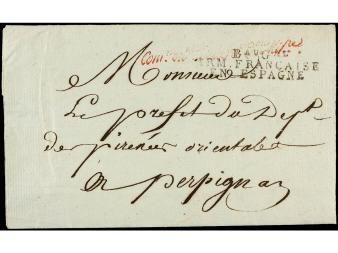 Bau G
ARM. FRANÇAISE
EN ESPAGNE
a Monsieur
Le prefet du Dept
de pirénées orientales
a perpignan